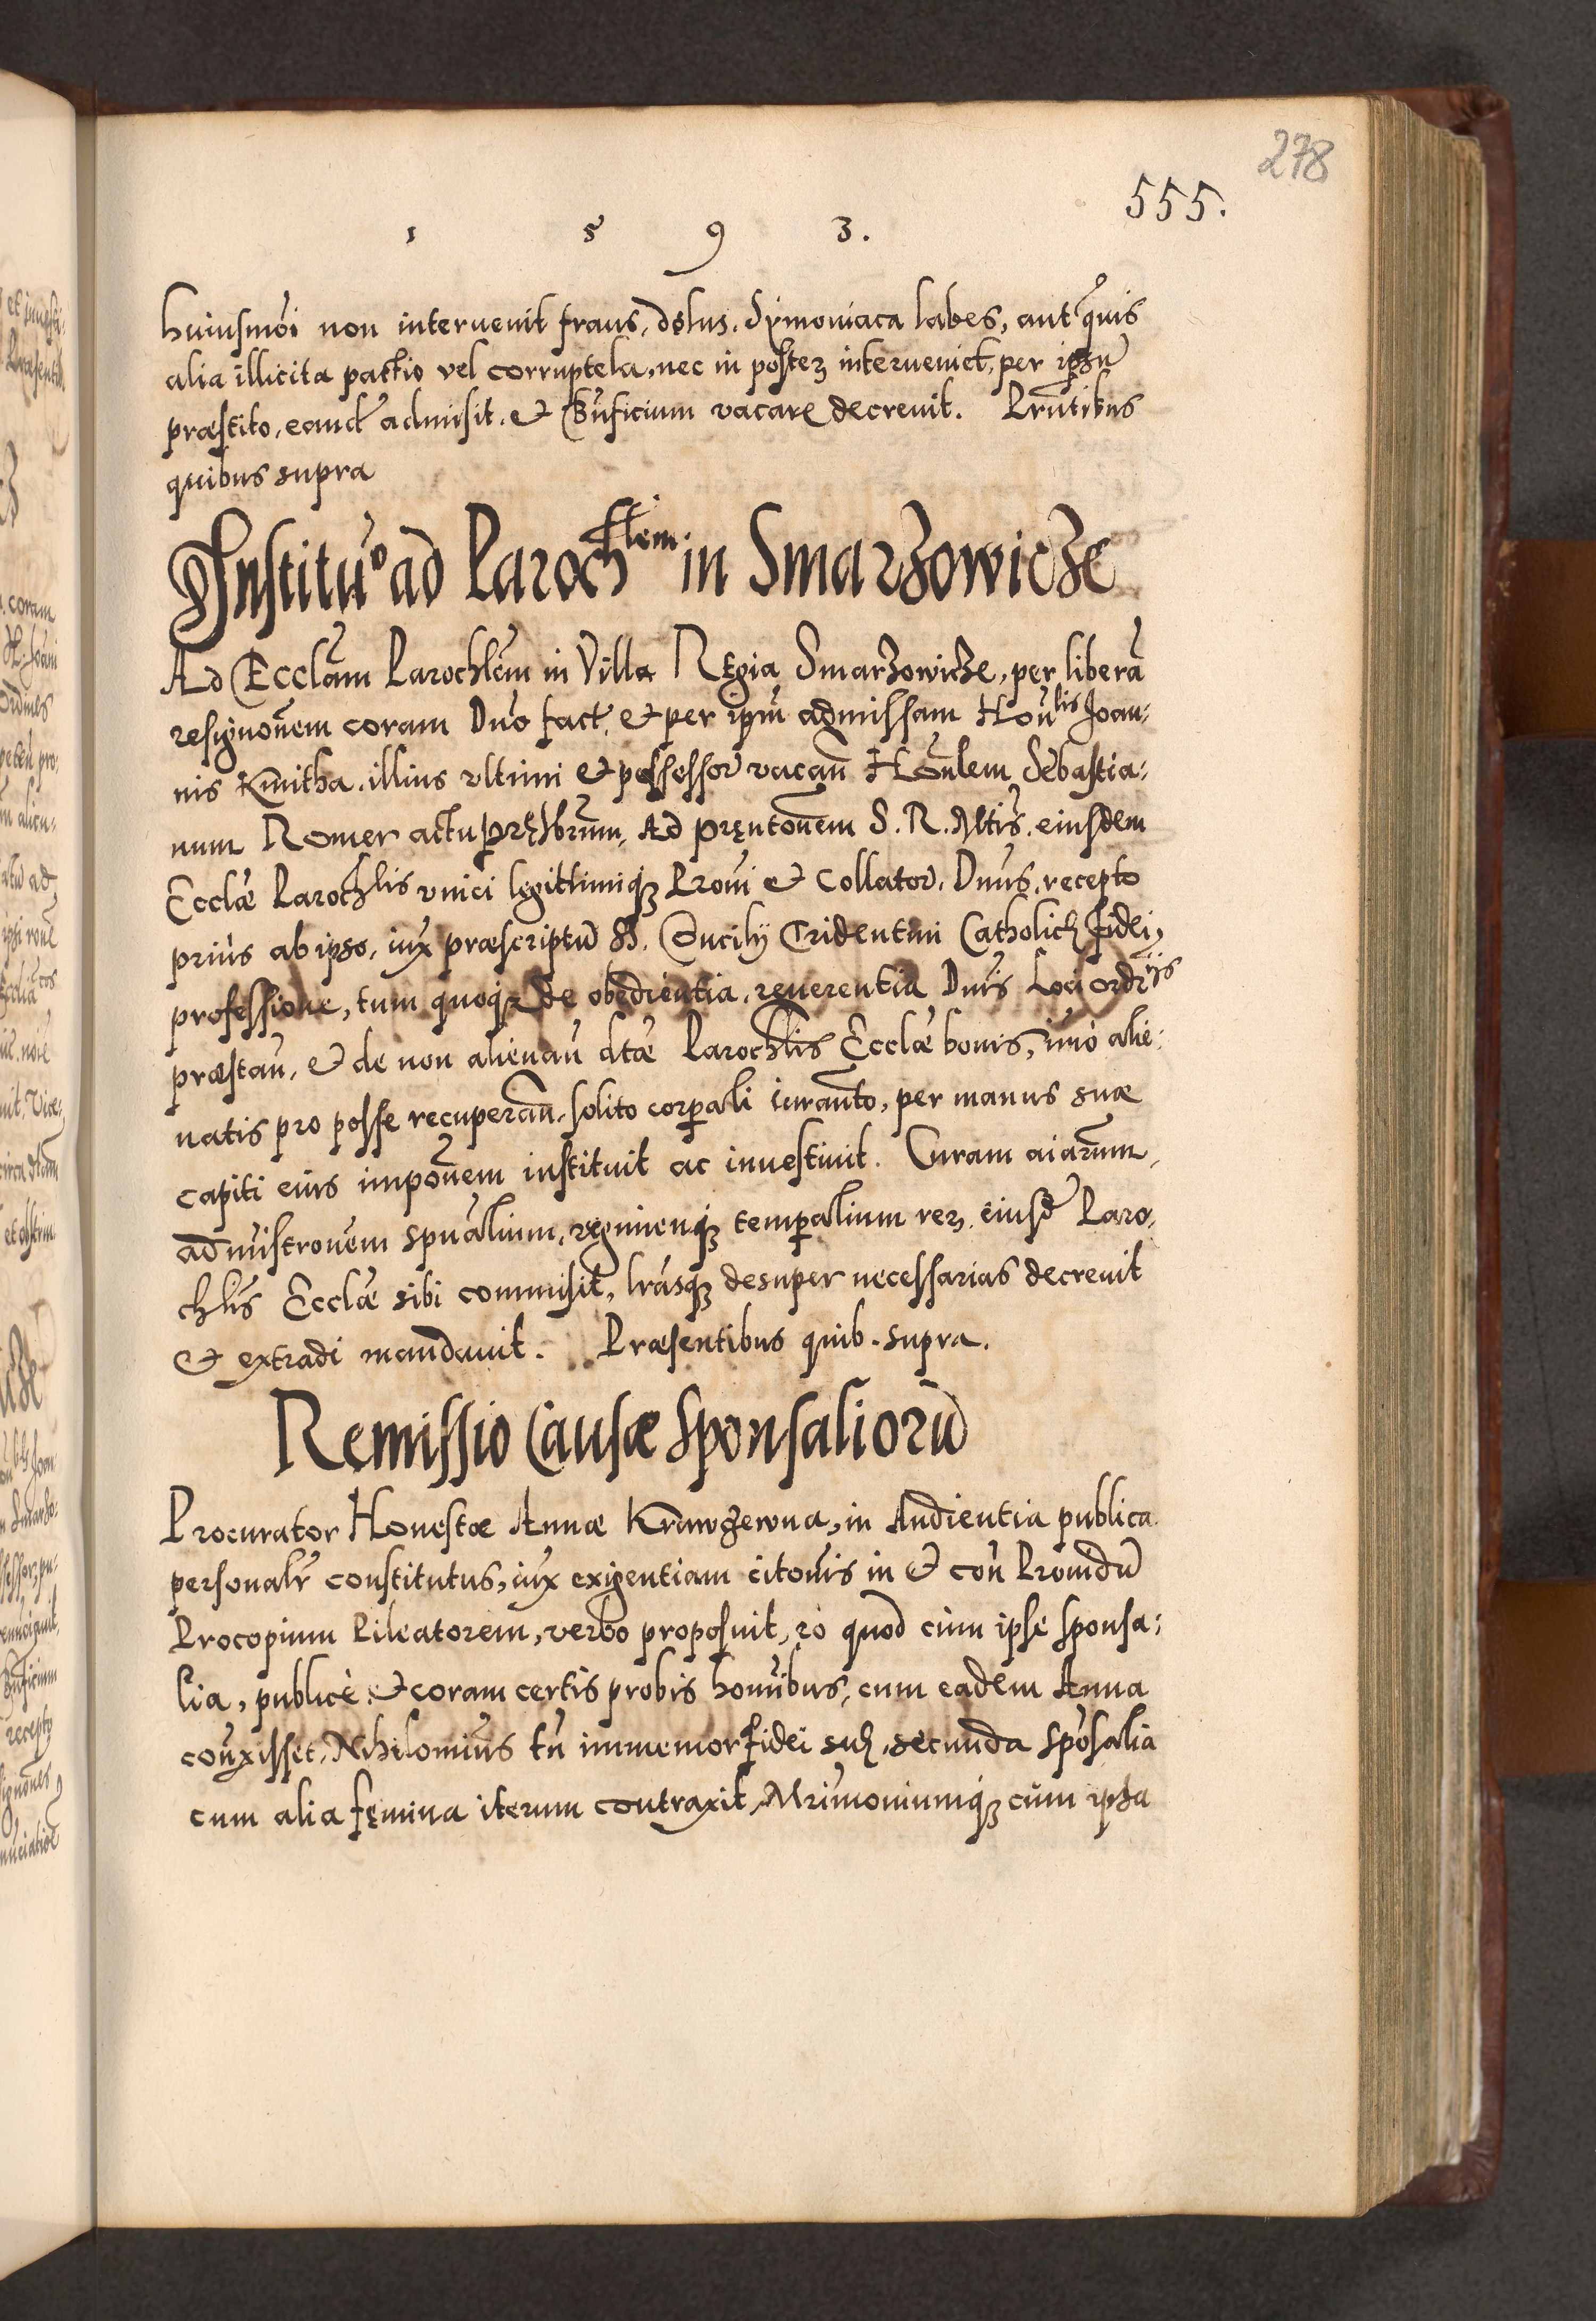 278
555.
1 5 9 3.
huiusmōi non interuenit fraus, dolus, Symoniaca labes, aut quis
alia illicita pactio vel corruptela, nec in posteȝ interueniet, per ipsū
præstito, eand̃ admisit, et Bn̄ficium vacare decreuit. Prn̄tibus
quibus supra
Institū° ad Paroch̄lem in Smarzowicze
Ad Eccl̄am Paroch̄lem in Villa Regia Smarzowicze, per liberā
resignōnem coram Dn̄o fact, et per ip̄m admissam Hon̄lis Joan:
nis Kmitha, illius vltimi et possessor̃ vacan̄ Hon̄lem Sebastia:
num Romer actu pręsb̄rum, Ad pręn̄tōnem S. R. Mtis, eiusdem
Eccl̄æ Paroch̄lis vnici legittimiqȝ Pr̄oni et Collator̃. Dn̄us, recepto
prius ab ipso, iux præscriptū S. Cōncilij Tridentini Catholicę fidei,
professione, tum quoqȝ de obedientia, reuerentia Dn̄is Loci ordr̄ijs
præstan̄, et de non alienan̄ dtæ Paroch̄lis Eccl̄æ bonis, imò alie:
natis pro posse recuperan̄, solito corporali iuran̄to, per manus suæ
capiti eius impōnem instituit ac inuestiuit. Curam aīarum,
administrōnem spūalium, regimenqȝ temporalium reȝ, eiusd̃ Paro,
chlis Eccl̄æ sibi commisit, lrāsqȝ desuper necessarias decreuit
et extradi mandauit. Præsentibus quib. supra.
Remissio Causæ Sponsaliorū
Procurator Honestæ Annæ Krawczewna, in Audientia publica
personalr̃ constitutus, iux exigentiam citōnis in et con̄ Prouidū
Procopium Pileatorem, verbo proposuit, eò quod cùm ipse sponsa:
lia, publicè, et coram certis probis homībus, cum eadem Anna
con̄xisset, Nihilominus tn̄ immemor fidei suę, secunda spōsalia
cum alia fęmina iterum contraxit, Mr̄imoniumqȝ cùm ipsa